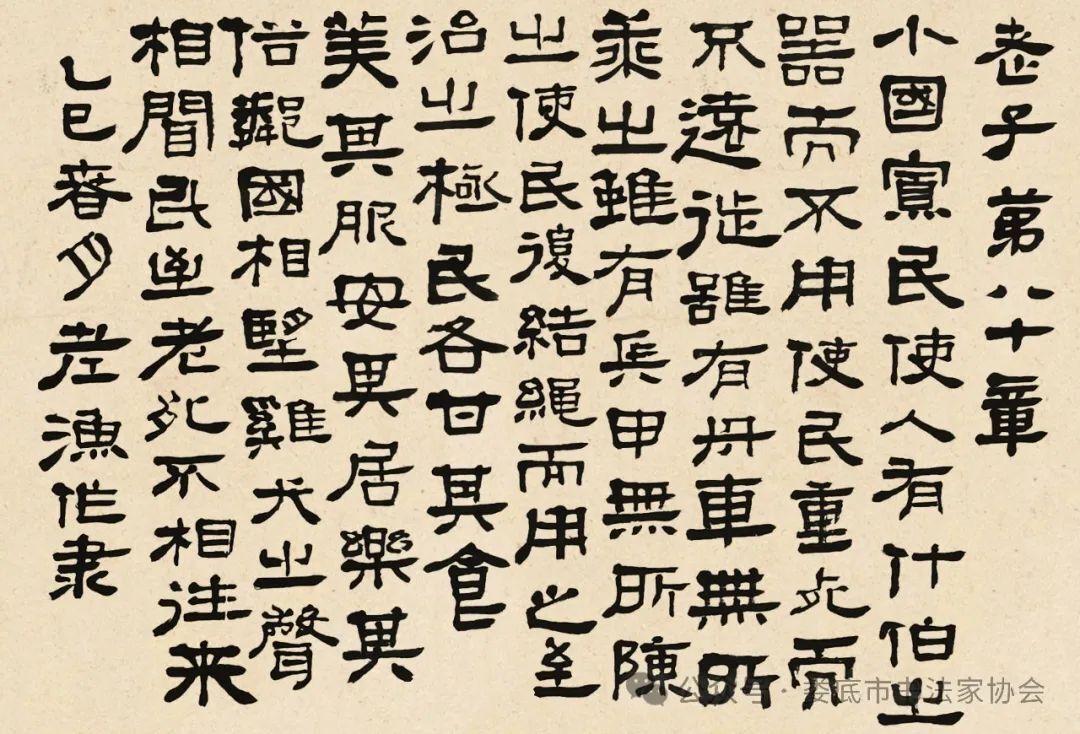 老子第八十章
小國寡民使人有什伯之
器而不用使民重死而
不遠徙雖有舟車無所
乘之雖有兵甲無所陳
之使民復結繩而用之至
治之極民各甘其食
美其服安其居樂其
俗鄰國相望雞犬之聲
相聞民至老死不相往来
乙巳春月漁作隶
公众号·娄底市书法家协会